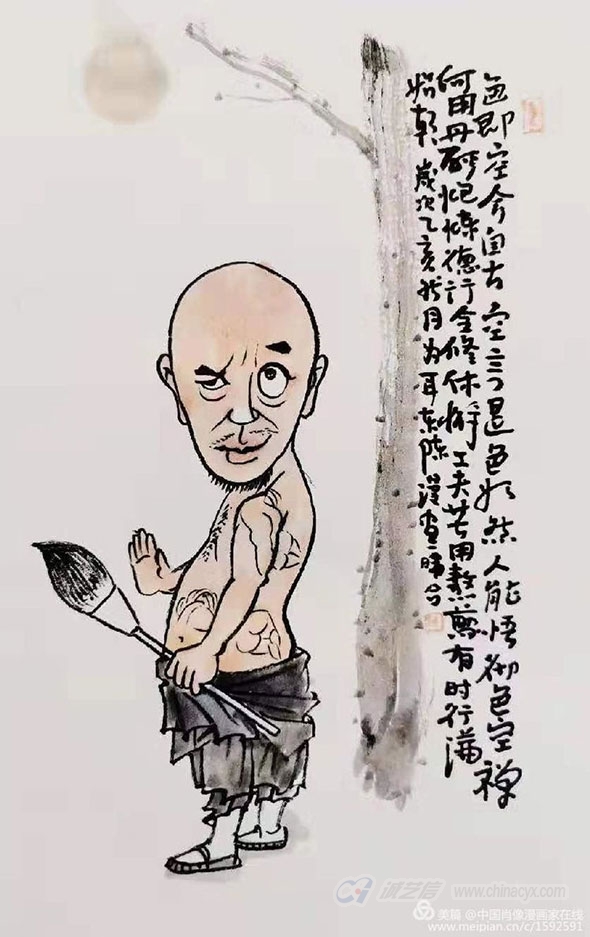 色即空兮自古空言是色如然人能悟彻色空禅
何用丹砂炮炼德行全修休懈工夫苦用熬煎有时行满
始朝 歲次乙亥秋月为耳东陈
www.chinacyx.com
美篇 @中国肖像漫画家在线
www.meipian.cn/c/1592591